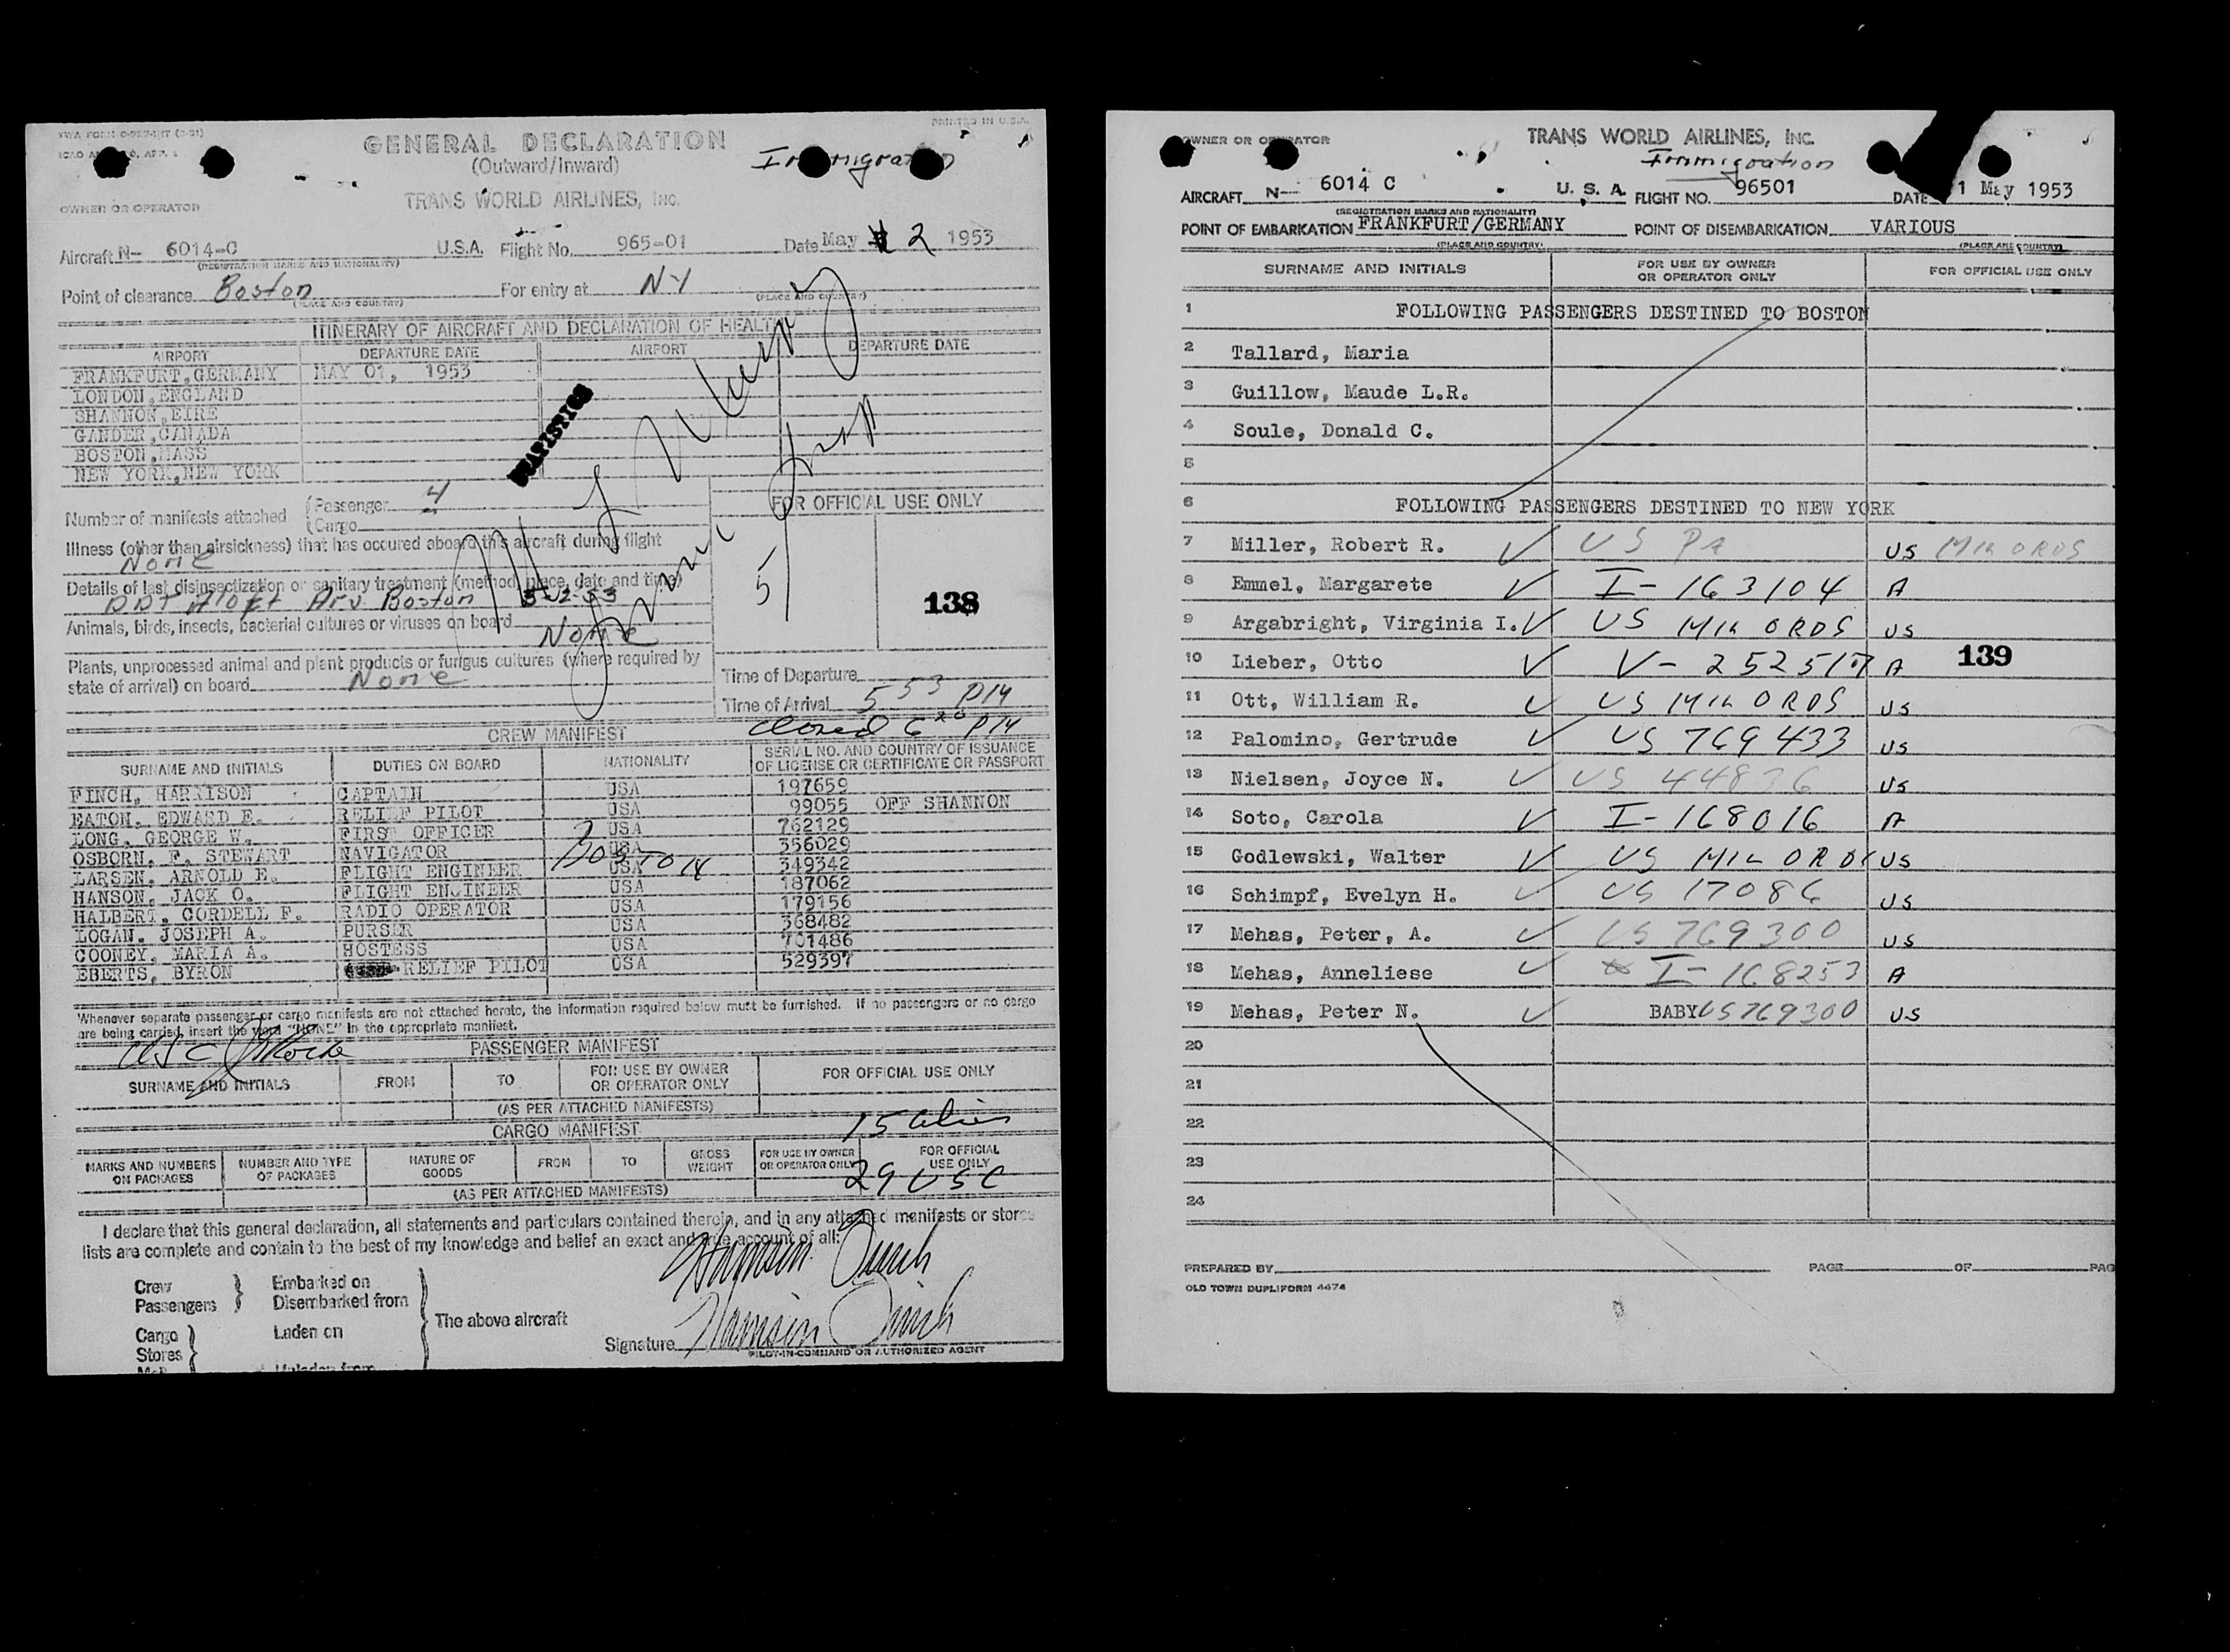 TWA FORM
PRINTED IN U.S.A.
GENERAL DECLARATION
(Outward/Inward)
Immigration
TRANS WORLD AIRLINES, INC.
OWNER OR OPERATOR
Aircraft N- 6014-C U.S.A. Flight No. 965-01 Date May 2 1953
(REGISTRATION MARKS AND NATIONALITY)
Point of clearance Boston For entry at NY
(PLACE AND COUNTRY) (PLACE AND COUNTRY)
ITINERARY OF AIRCRAFT AND DECLARATION OF HEALTH
AIRPORT DEPARTURE DATE AIRPORT DEPARTURE DATE
FRANKFURT, GERMANY MAY 01, 1953
LONDON, ENGLAND
SHANNON, EIRE
GANDER, CANADA
BOSTON, MASS
NEW YORK, NEW YORK
STATISTICS
Number of manifests attached
Passenger 4
Cargo
FOR OFFICIAL USE ONLY
Illness (other than airsickness) that has occured aboard this aircraft during flight
None
Details of last disinsectization or sanitary treatment (method, place, date and time)
DDT Aloft Arv. Boston 5-2-53
138
Animals, birds, insects, bacterial cultures or viruses on board None
Plants, unprocessed animal and plant products or fungus cultures (where required by
state of arrival) on board None
Time of Departure
Time of Arrival 5 53 PM
closed 6 20 PM
CREW MANIFEST
SURNAME AND INITIALS DUTIES ON BOARD NATIONALITY SERIAL NO. AND COUNTRY OF ISSUANCE OF LICENSE OR CERTIFICATE OR PASSPORT
FINCH, HARRISON CAPTAIN USA 197659
EATON, EDWARD E. RELIEF PILOT USA 99055 OFF SHANNON
LONG, GEORGE W. FIRST OFFICER USA 762129
OSBORN, F. STEWART NAVIGATOR USA 356029
BOSTON
LARSEN, ARNOLD E. FLIGHT ENGINEER USA 349342
HANSON, JACK O. FLIGHT ENGINEER USA 187062
HALBERT, CORDELL F. RADIO OPERATOR USA 179156
LOGAN, JOSEPH A. PURSER USA 368482
COONEY, MARIA A. HOSTESS USA 701486
EBERTS, BYRON RELIEF PILOT USA 529397
Whenever separate passenger or cargo manifests are not attached hereto, the information required below must be furnished. If no passengers or no cargo
are being carried, insert the word "NONE" in the appropriate manifest.
PASSENGER MANIFEST
SURNAME AND INITIALS FROM TO FOR USE BY OWNER OR OPERATOR ONLY FOR OFFICIAL USE ONLY
(AS PER ATTACHED MANIFESTS)
CARGO MANIFEST
15 Alien
MARKS AND NUMBERS ON PACKAGES NUMBER AND TYPE OF PACKAGES NATURE OF GOODS FROM TO GROSS WEIGHT FOR USE BY OWNER OR OPERATOR ONLY FOR OFFICIAL USE ONLY
29 USC
(AS PER ATTACHED MANIFESTS)
I declare that this general declaration, all statements and particulars contained therein, and in any attached manifests or stores
lists are complete and contain to the best of my knowledge and belief an exact and true account of all:
Harrison Finch
Crew Embarked on
Passengers Disembarked from
The above aircraft
Cargo Laden on
Stores
Signature Harrison Finch
PILOT-IN-COMMAND OR AUTHORIZED AGENT
OWNER OR OPERATOR TRANS WORLD AIRLINES, INC.
Immigration
AIRCRAFT N- 6014 C U. S. A. FLIGHT NO. 96501 DATE 1 May 1953
(REGISTRATION MARKS AND NATIONALITY)
POINT OF EMBARKATION FRANKFURT/GERMANY POINT OF DISEMBARKATION VARIOUS
(PLACE AND COUNTRY) (PLACE AND COUNTRY)
SURNAME AND INITIALS FOR USE BY OWNER OR OPERATOR ONLY FOR OFFICIAL USE ONLY
1 FOLLOWING PASSENGERS DESTINED TO BOSTON
2 Tallard, Maria
3 Guillow, Maude L.R.
4 Soule, Donald C.
5
6 FOLLOWING PASSENGERS DESTINED TO NEW YORK
7 Miller, Robert R. US US MIL ORDS
8 Emmel, Margarete I-163104 A
9 Argabright, Virginia I. US MIL ORDS US
10 Lieber, Otto A 139
11 Ott, William R. US MIL ORDS US
12 Palomino, Gertrude US 769433 US
13 Nielsen, Joyce N. US 44836 US
14 Soto, Carola I-168016 A
15 Godlewski, Walter US MIL ORDS US
16 Schimpf, Evelyn H. US 17086 US
17 Mehas, Peter, A. US 769300 US
18 Mehas, Anneliese I-168253 A
19 Mehas, Peter N. BABY US 769300 US
20
21
22
23
24
PREPARED BY PAGE OF PAG
OLD TOWN DUPLIFORM 4474